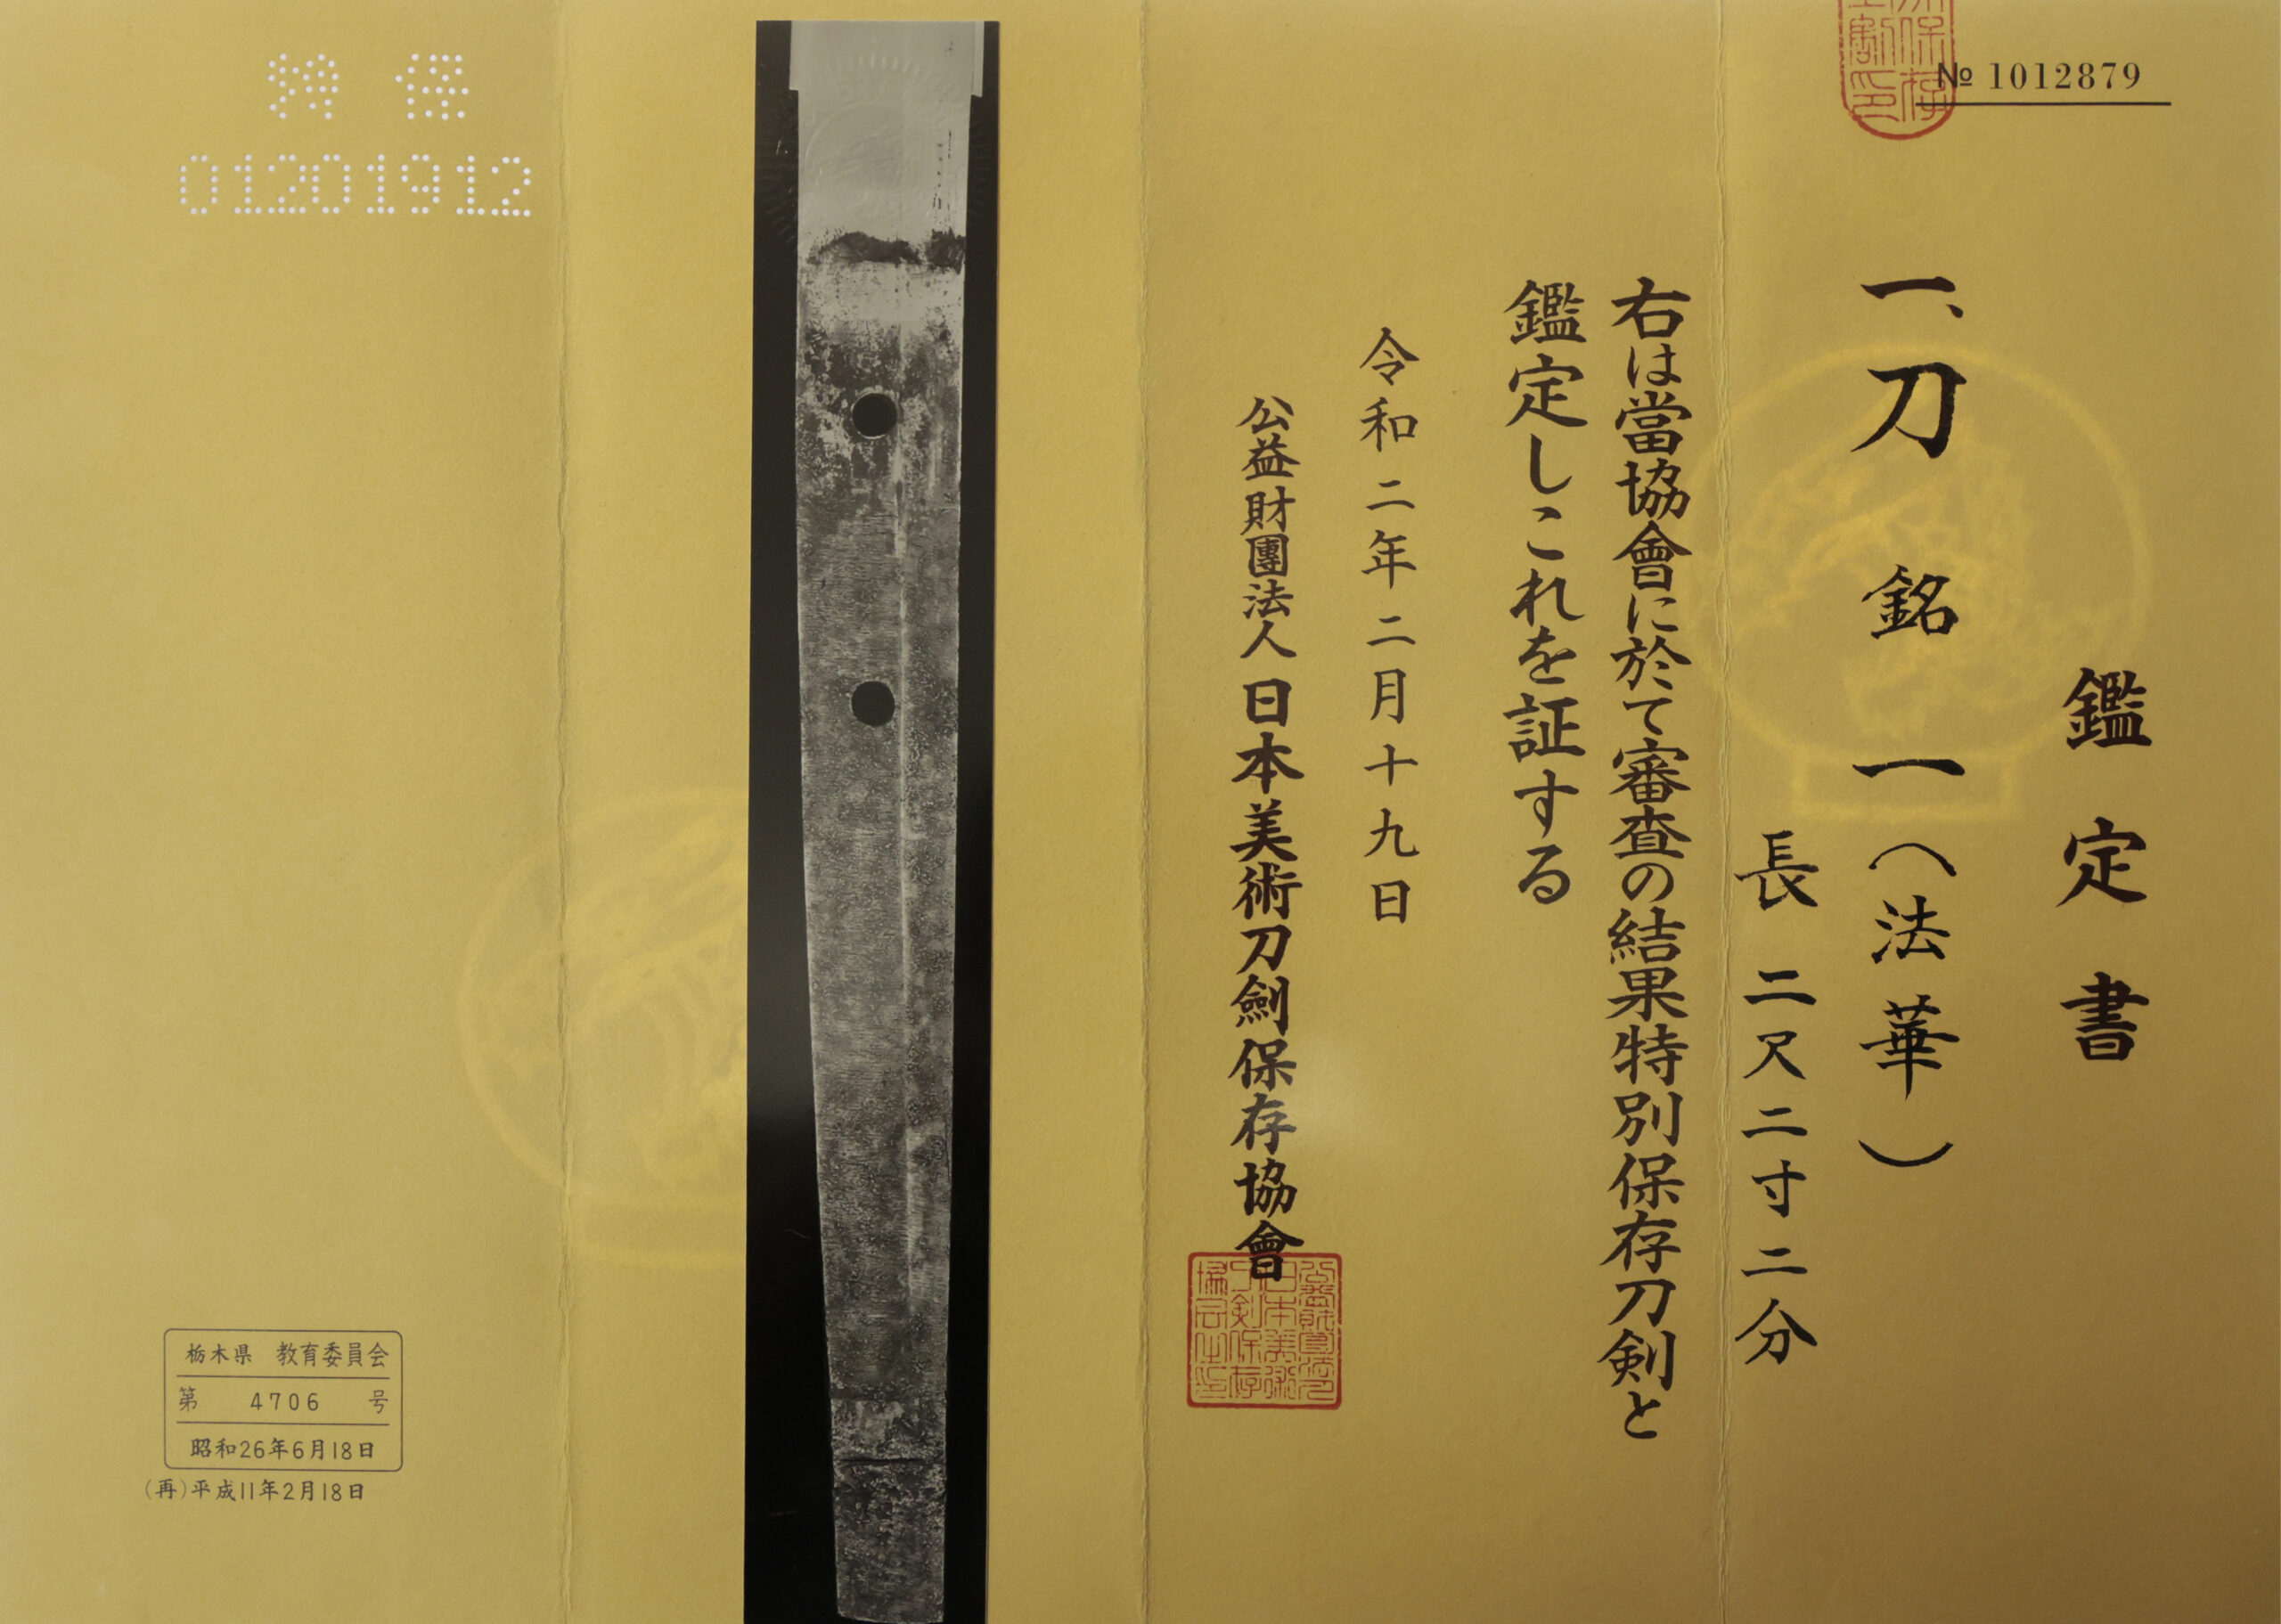 № 1012879
鑑定書
一、刀 銘 一(法華)
長 二尺二寸二分
右は當協會に於て審査の結果特別保存刀剣と
鑑定しこれを証する
令和二年二月十九日
公益財團法人 日本美術刀劍保存協會
特 保
01201912
栃木県 教育委員会
第 4706 号
昭和26年6月18日
(再)平成11年2月18日